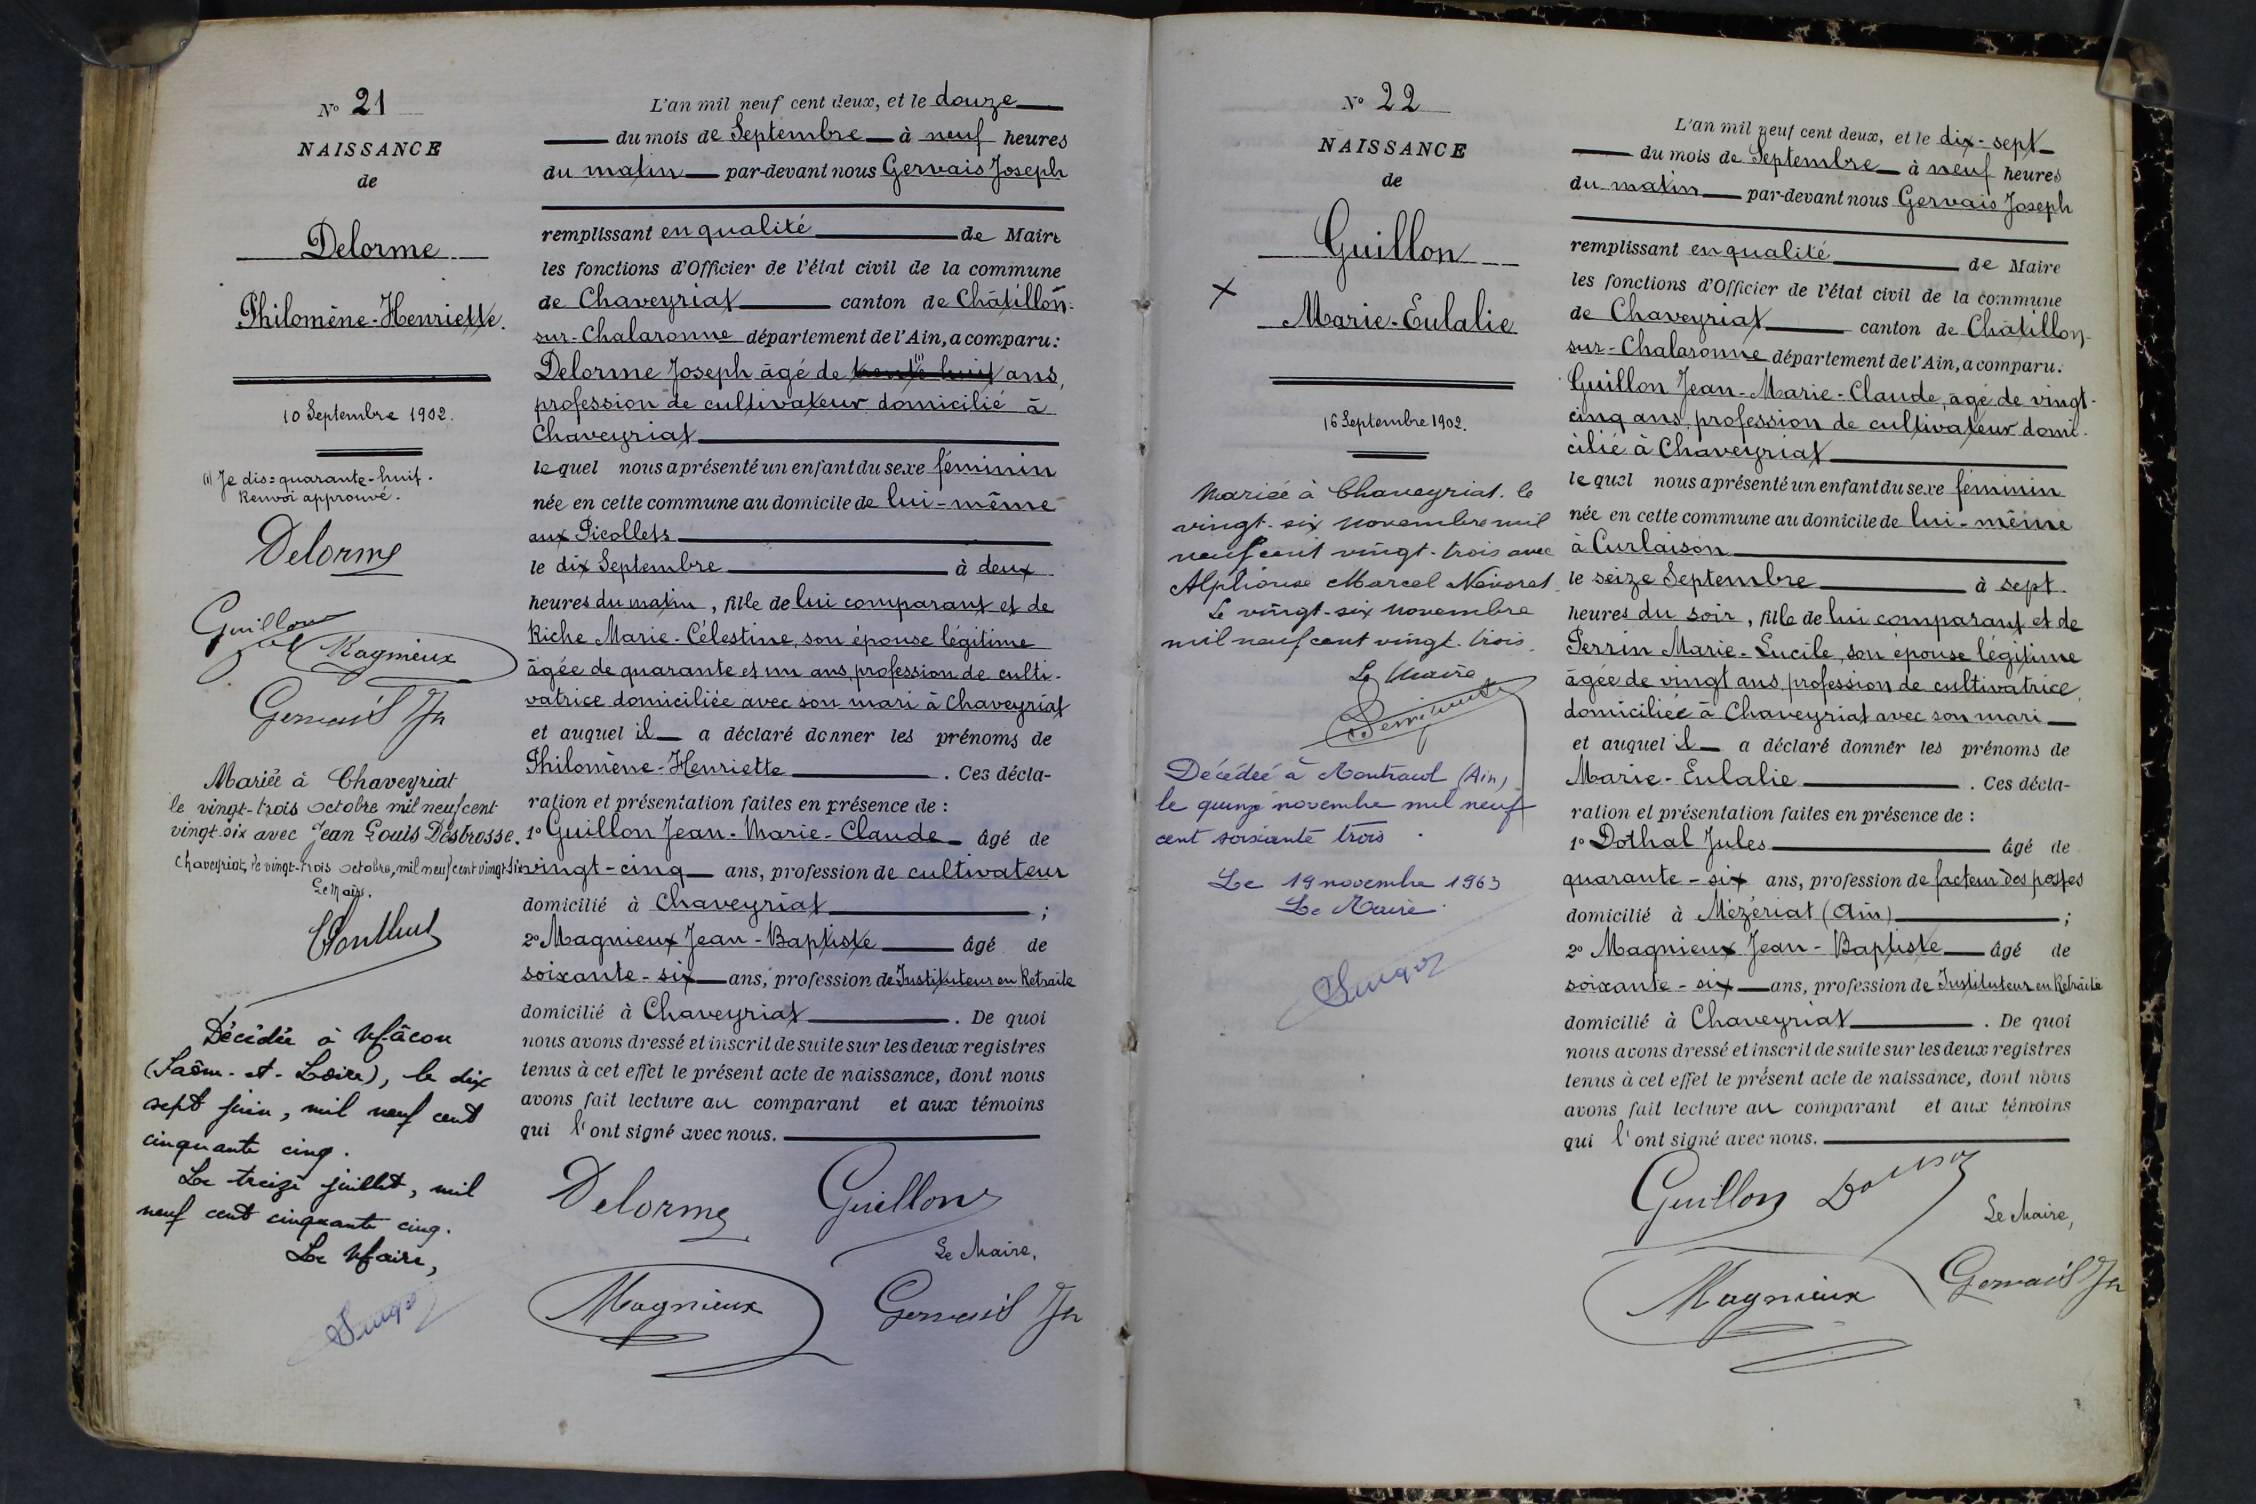 N° 21
NAISSANCE
de
Delorme
Philomène-Henriette.
10 Septembre 1902.
(1) Je dis = quarante-huit.
Renvoi approuvé.
Delorme
Guillon
Magnieux
Gervais Jh
Mariée à Chaveyriat
le vingt-trois octobre mil neuf cent
vingt-six avec Jean Louis Desbrosse.
Chaveyriat, le vingt-trois octobre, mil neuf cent vingt-six
Le Maire.
Décédée à Mâcon
(Saône-et-Loire), le dix
sept juin, mil neuf cent
cinquante cinq.
Le treize juillet, mil
neuf cent cinquante cinq.
Le Maire,
L'an mil neuf cent deux, et le douze
du mois de Septembre à neuf heures
du matin par-devant nous Gervais Joseph
remplissant en qualité de Maire
les fonctions d'Officier de l'état civil de la commune
de Chaveyriat canton de Châtillon-
sur-Chalaronne département de l'Ain, a comparu:
Delorme Joseph âgé de trente huit (1) ans,
profession de cultivateur domicilié à
Chaveyriat
lequel nous a présenté un enfant du sexe féminin
née en cette commune au domicile de lui-même
aux Picollets
le dix Septembre à deux
heures du matin, fille de lui comparant et de
Riche Marie-Célestine, son épouse légitime
âgée de quarante et un ans, profession de culti-
vatrice domiciliée avec son mari à Chaveyriat
et auquel il a déclaré donner les prénoms de
Philomène-Henriette . Ces décla-
ration et présentation faites en présence de :
1° Guillon Jean-Marie-Claude âgé de
vingt-cinq ans, profession de cultivateur
domicilié à Chaveyriat ;
2° Magnieux Jean-Baptiste âgé de
soixante-six ans, profession de Instituteur en Retraite
domicilié à Chaveyriat . De quoi
nous avons dressé et inscrit de suite sur les deux registres
tenus à cet effet le présent acte de naissance, dont nous
avons fait lecture au comparant et aux témoins
qui l'ont signé avec nous.
Delorme Guillon
Le Maire,
Magnieux Gervais Jh
N° 22
NAISSANCE
de
Guillon
X
Marie-Eulalie
16 Septembre 1902.
Mariée à Chaveyriat. le
vingt-six novembre mil
neuf cent vingt-trois avec
Alphonse Marcel Nevoret.
Le vingt-six novembre
mil neuf cent vingt-trois.
Le Maire
Décédée à (Ain)
le quinze novembre mil neuf
cent soixante trois.
Le 19 novembre 1963
Le Maire
L'an mil neuf cent deux, et le dix-sept
du mois de Septembre à neuf heures
du matin par-devant nous Gervais Joseph
remplissant en qualité de Maire
les fonctions d'Officier de l'état civil de la commune
de Chaveyriat canton de Châtillon-
sur-Chalaronne département de l'Ain, a comparu.
Guillon Jean-Marie-Claude, âgé de vingt-
cinq ans, profession de cultivateur domi-
cilié à Chaveyriat
lequel nous a présenté un enfant du sexe féminin
née en cette commune au domicile de lui-même
à Curlaison
le seize Septembre à sept
heures du soir, fille de lui comparant et de
Perrin Marie-Lucile, son épouse légitime
âgée de vingt ans, profession de cultivatrice
domiciliée à Chaveyriat avec son mari
et auquel il a déclaré donner les prénoms de
Marie-Eulalie . Ces décla-
ration et présentation faites en présence de :
1° Dothal Jules âgé de
quarante-six ans, profession de facteur des postes
domicilié à Mézériat (Ain) ;
2° Magnieux Jean-Baptiste âgé de
soixante-six ans, profession de Instituteur en Retraite
domicilié à Chaveyriat . De quoi
nous avons dressé et inscrit de suite sur les deux registres
tenus à cet effet le présent acte de naissance, dont nous
avons fait lecture au comparant et aux témoins
qui l'ont signé avec nous.
Guillon
Le Maire,
Magnieux Gervais Jh